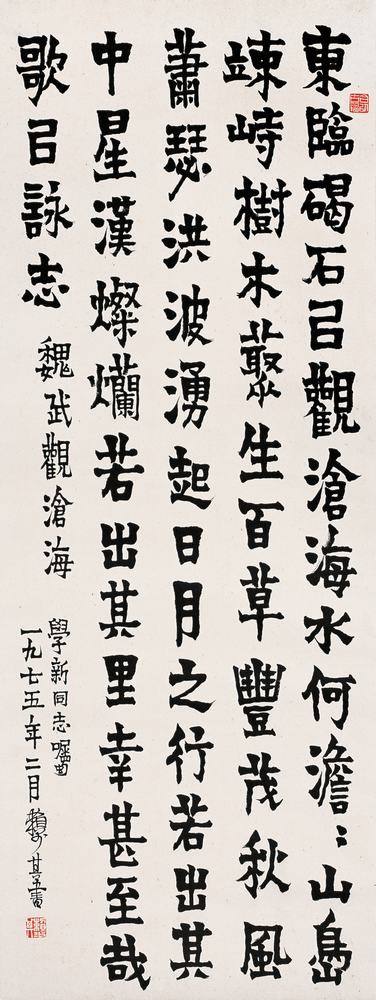 東臨碣石㠯觀滄海水何澹〻山島
竦峙樹木藂生百草豐茂秋風
蕭瑟洪波湧起日月之行若出其
中星漢燦爛若出其里幸甚至哉
歌㠯詠志
魏武觀滄海
學新同志囑
一九七五年二月賴少其書